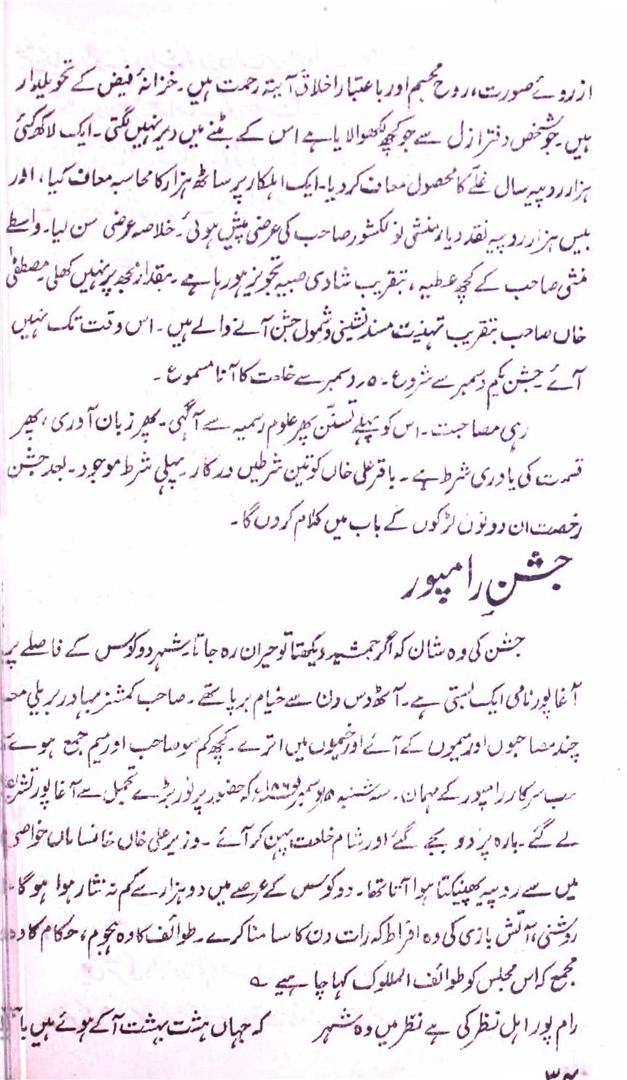 ازروئے صورت، روح مجسم اور باعتبار اخلاق آیتہ رحمت ہیں۔ خزانۂ فیض کے تحویلدار
ہیں۔ جو شخص دفتر ازل سے جو کچھ لکھوا لایا ہے اس کے بٹنے میں دیر نہیں لگتی۔ ایک لاکھ کئی
ہزار روپیہ سال غلّے کا محصول معاف کر دیا۔ ایک اہلکار پر ساٹھ ہزار کا محاسبہ معاف کیا، اور
بیس ہزار روپیہ نقد دیا۔ منشی نولکشور صاحب کی عرضی پیش ہوئی۔ خلاصہ عرضی سن لیا۔ واسطے
منشی صاحب کے کچھ عطیہ، بتقریب شادی صبیہ تجویز ہو رہا ہے۔ مقدار مجھ پر نہیں کھلی۔ مصطفیٰ
خاں صاحب بتقریب تہنیت مسند نشینی و شمول جشن آنے والے ہیں۔ اس وقت تک نہیں
آئے۔ جشن یکم دسمبر سے شروع۔ ۵ دسمبر سے خلعت کا آنا مسموع۔
رہی مصاحبت۔ اس کو پہلے تسنّن پھر علوم رسمیہ سے آگہی۔ پھر زبان آوری، پھر
قسمت کی یاوری شرط ہے۔ باقر علی خاں کو تین شرطیں درکار پہلی شرط موجود۔ بعد جشن
رخصت ان دونوں لڑکوں کے باب میں کلام کروں گا۔
جشنِ رامپور
جشن کی وہ شان کہ اگر جمشید دیکھتا تو حیران رہ جاتا۔ شہر دو کوس کے فاصلے پر
آغا پور نامی ایک بستی ہے۔ آٹھ دس دن سے خیام برپا تھے۔ صاحب کمشنر بہادر بریلی مع
چند صاحبوں اور میموں کے آئے اور خیموں میں اترے۔ کچھ کم سو صاحب اور میم جمع ہوئے
سب سرکار رامپور کے مہمان۔ سہ شنبہ ۵ دسمبر کہ حضور پر نور بڑے تجمل سے آغا پور تشریف
لے گئے۔ بارہ پر دو بجے گئے اور شام خلعت پہن کر آئے۔ وزیر علی خاں خانساماں خواصی
میں سے روپیہ پھینکتا ہوا آتا تھا۔ دو کوس کے عرصے میں دو ہزار سے کم نہ نثار ہوا ہو گا۔
روشنی، آتش بازی کی وہ افراط کہ رات دن کا سامنا کرے۔ طوائف کا وہ ہجوم، حکام کا وہ
مجمع کہ اس مجلس کو طوائف الملوک کہا چاہیے ؎
رام پور اہل نظر کی ہے نظر میں وہ شہر کہ جہاں ہشت بہشت آ کے ہوئے ہیں